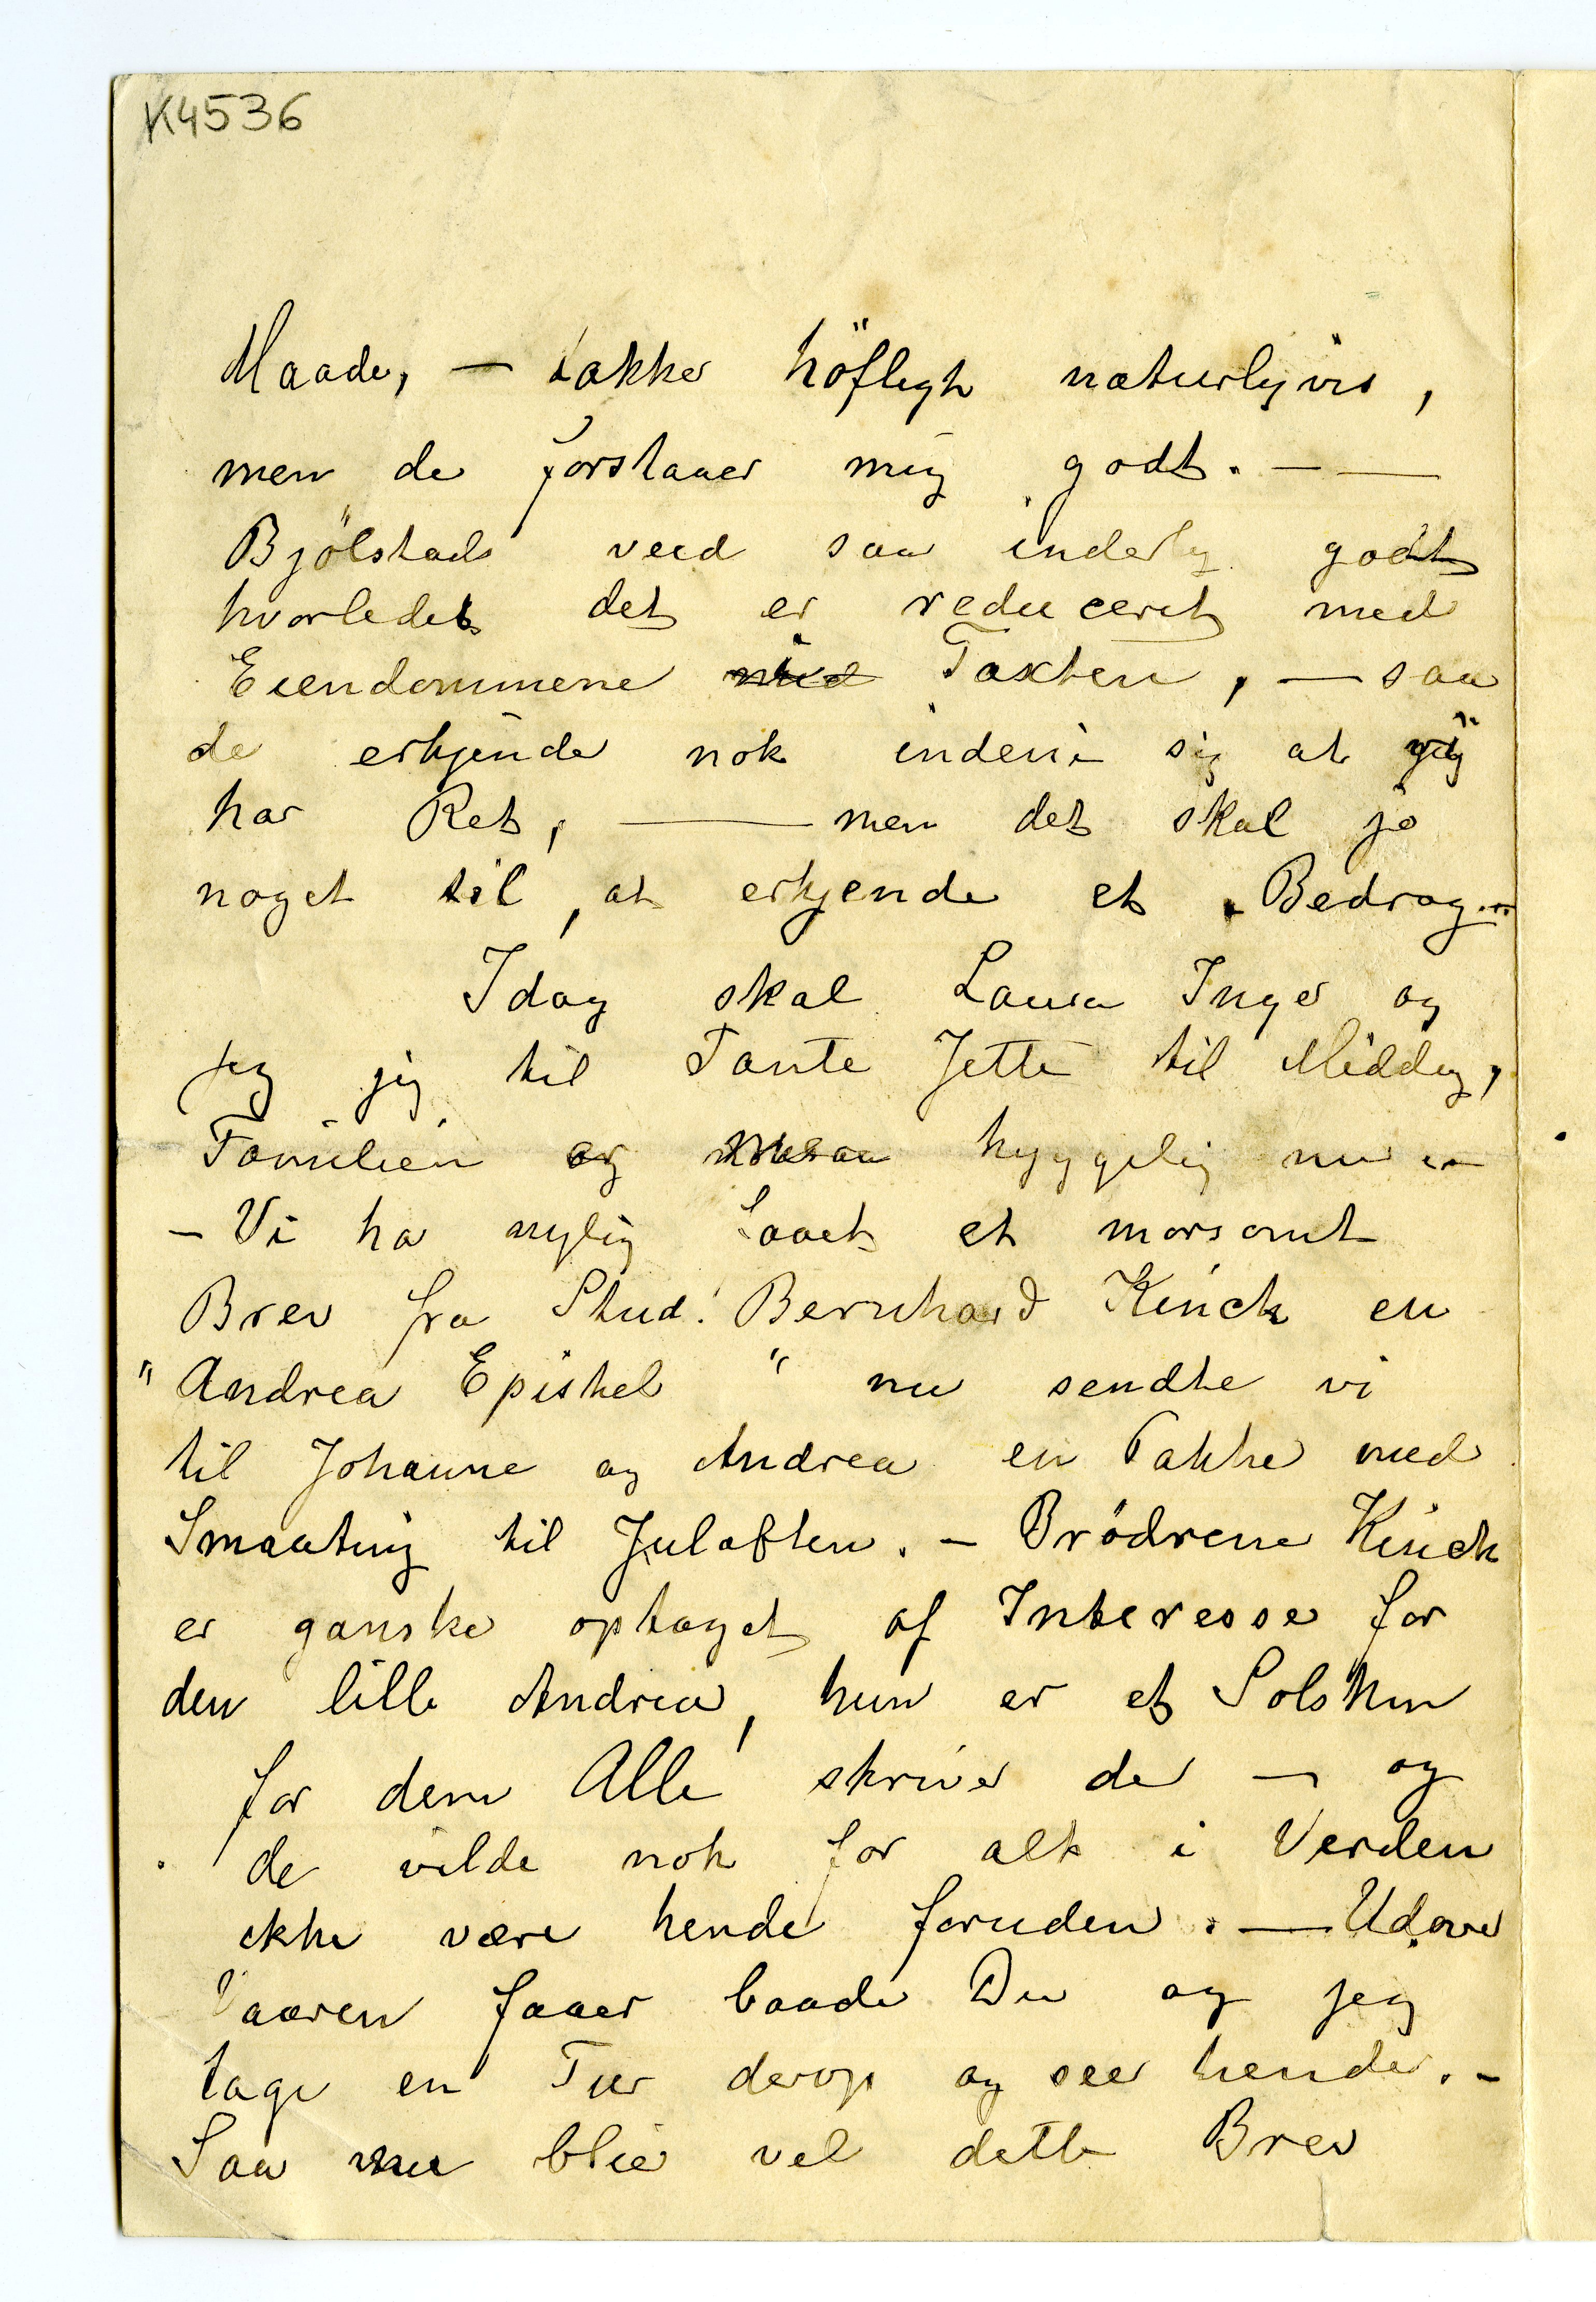 K4536
Maade, — takker höfligt naturligvis,
men de forstaaer mig godt. — —
Bjölstads veed saa inderlig godt
hvorledes det er reduceret med
Eiendommene Taxten, — saa
de erkjende nok indeni sig at jeg
har Ret, — men det skal jo
noget til, at erkjende et Bedrag...
Idag skal Laura Inger og
jeg til Tante Jette til Middag,
Familien er hyggelig nu —
— Vi ha nylig faaet et morsomt
Brev fra Stud. Bernhard Kinck en
"Andrea Epistel" nu sendte vi
til Johanne og Andrea en Pakke med
Smaating til Juleaften. — Brödrene Kinck
er ganske optaget af Interesse for
den lille Andrea, hun er et Solskin
for dem Alle skriver de — og
de vilde nok for alt i Verden
ikke være hende foruden. — Udover
Vaaren faaer baade Du og jeg
tage en Tur derop og see hende. —
Saa nu blir vel dette Brev